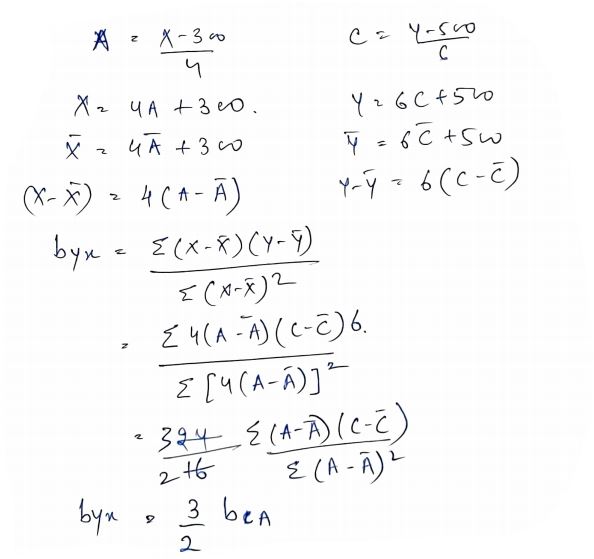 A = X-300/4
C = Y-500/C
X = 4A + 300.
Y = 6C + 500
X̄ = 4Ā + 300
Ȳ = 6C̄ + 500
(X-X̄) = 4(A-Ā)
Y-Ȳ = 6(C-C̄)
byx = Σ(X-X̄)(Y-Ȳ)/Σ(X-X̄)2
= Σ4(A-Ā)(C-C̄)6./Σ[4(A-Ā)]2
= 324/216 Σ(A-Ā)(C-C̄)/Σ(A-Ā)2
byx = 3/2 bCA